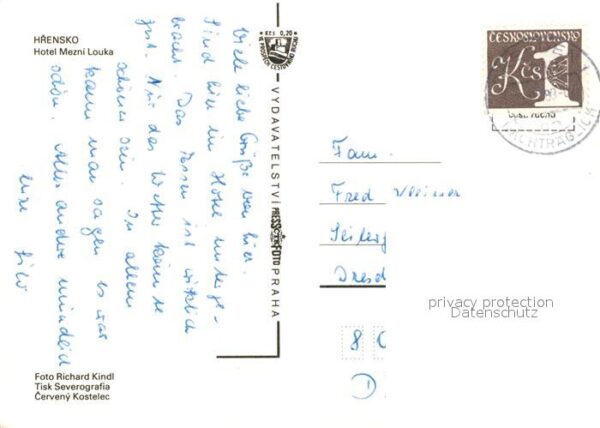 HŘENSKO
Hotel Mezní Louka
Viele liebe Grüße von hier.
Sind hier im Hotel unterge-
bracht. Das Essen ist wirklich
gut. Nur das Wetter könnte
schöner sein. In allem
kann man sagen es war
schön. Alles andere mündlich
eure
Foto Richard Kindl
Tisk Severografia
Červený Kostelec
Kčs 0,20
VYDAVATELSTVÍ PRESSFOTO PRAHA
ČESKOSLOVENSKO
Kčs 1
NACHTRÄGLICH
Fam.
Fred
Dresd
8
privacy protection
Datenschutz